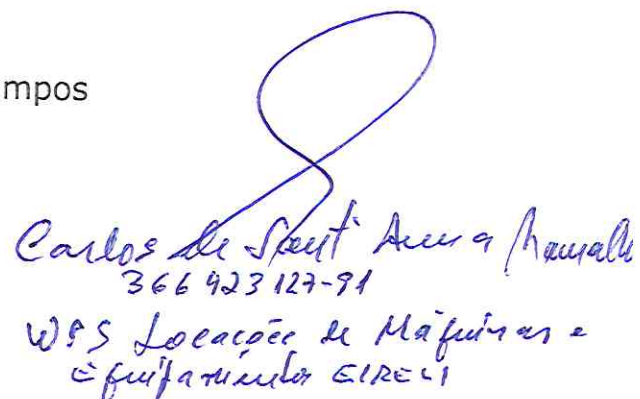 mpos
Carlos de Sant Anna
366 923 127-91
WSS Locações de Máquinas e
Equipamentos EIRELI